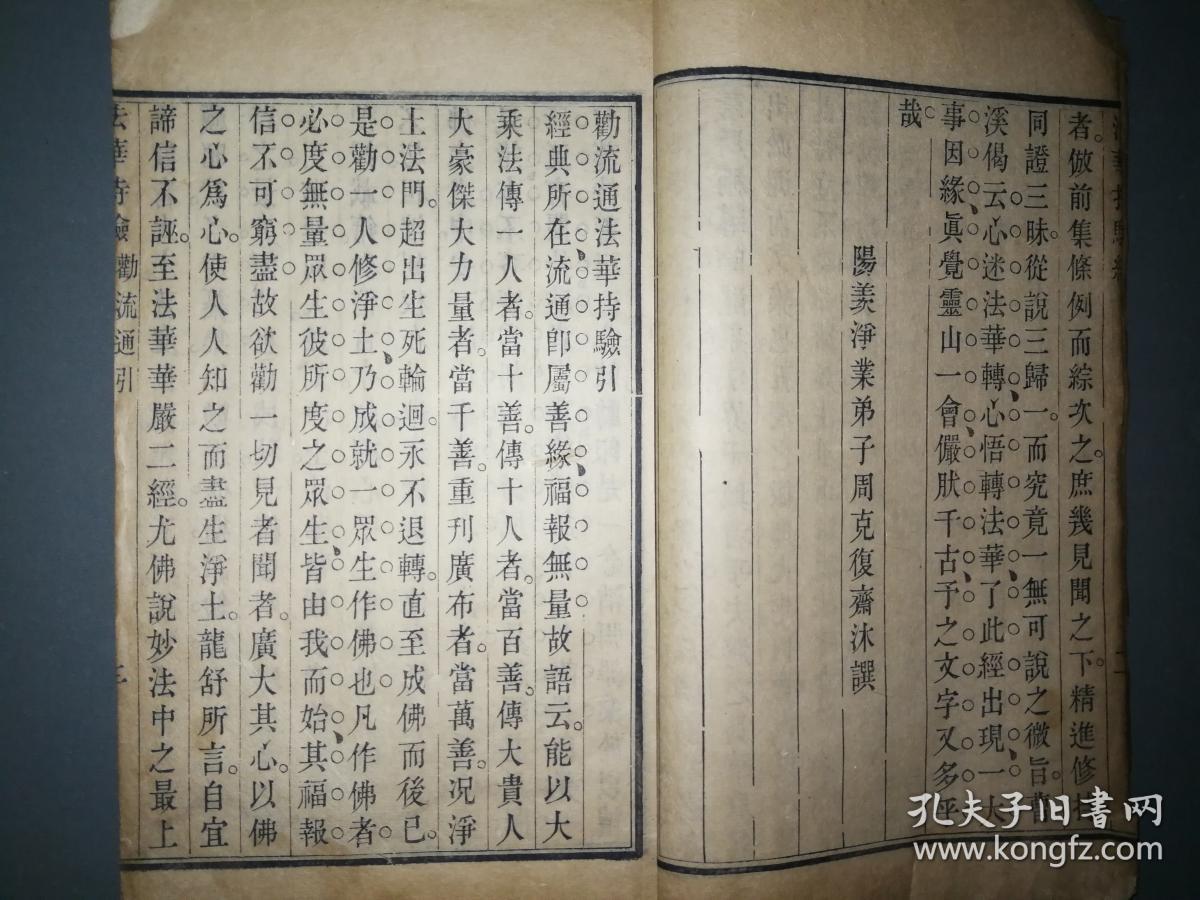 者。倣前集條例而綜次之。庶幾見聞之下。精進修持
同證三昧。從說三歸一。而究竟一無可說之微旨。曹
溪偈云。心迷法華轉。心悟轉法華。了此經出現一大
事因緣。眞覺靈山一會。儼肰千古。予之文字又多乎
哉。
陽羨淨業弟子周克復齋沐譔
勸流通法華持驗引
經典所在。流通卽屬善緣。福報無量。故語云。能以大
乘法傳一人者。當十善。傳十人者。當百善。傳大貴人
大豪傑大力量者。當千善。重刊廣布者。當萬善。况淨
土法門。超出生死輪迴。永不退轉。直至成佛而後已。
是勸一人修淨土。乃成就一眾生作佛也。凡作佛者
必度無量眾生。彼所度之眾生。皆由我而始。其福報
信不可窮盡。故欲勸一切見者聞者。廣大其心。以佛
之心爲心。使人人知之而盡生淨土。龍舒所言。自宜
諦信不誣。至法華華嚴二經。尤佛說妙法中之最上
法華持驗 勸流通引
孔夫子旧书网
www.kongfz.com